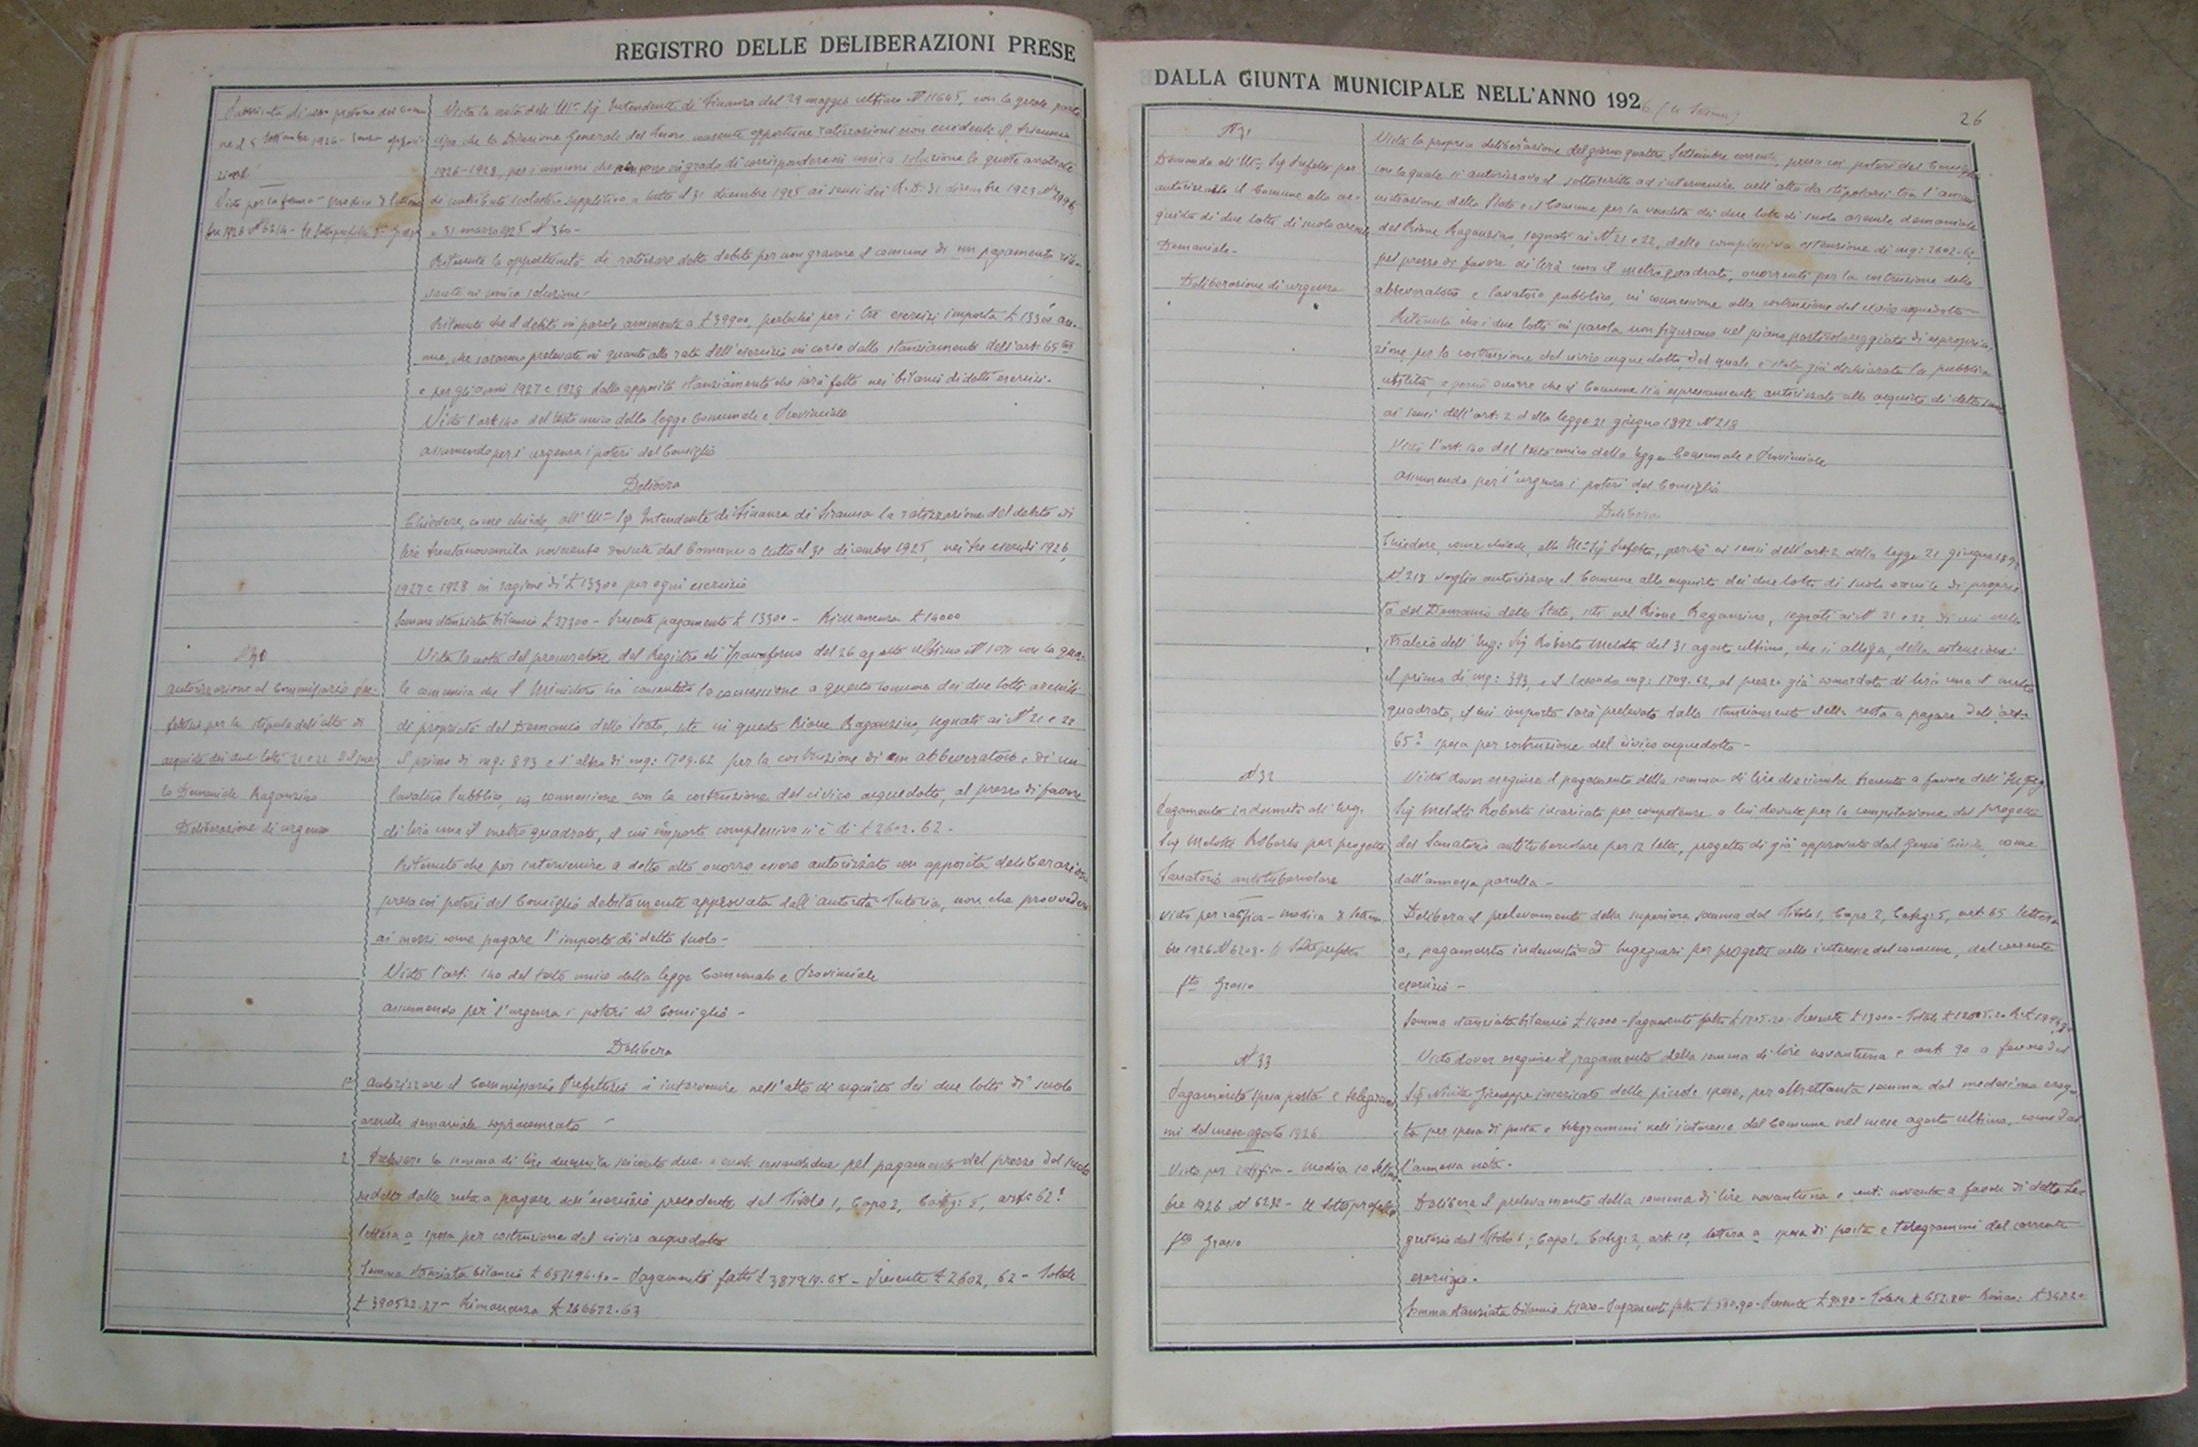 REGISTRO DELLE DELIBERAZIONI PRESE
Vista la nota dell' Ill. Sig Intendente di Finanza del 29 maggio ultimo N 11645, con la quale
ne d 5 Settembre 1926
che la Direzione Generale del Tesoro consente opportune ratizzazioni non eccedente il triennio
1926-1928, per i comuni che non sono in grado di corrispondere in unica soluzione le quote arretrate
di contributo scolastico suppletivo a tutto il 31 dicembre 1925 ai sensi dei R. D. 31 dicembre 1923 N 2996
e 31 marzo 1925 N 360-
Ritenuta la opportunità di ratizzare detto debito per non gravare il comune di un pagamento
in unica soluzione-
Ritenuto che il debito in parola ammonta a £ 39900, perlochè per i tre esercizi importa £ 13300
che saranno prelevate in quanto alla rata dell'esercizio in corso dallo stanziamento dell'art 65
e per gli anni 1927 e 1928 dallo apposito stanziamento che sarà fatto nei bilanci di detti esercizi.
Visto l'art 140 del testo unico della legge Comunale e Provinciale
assumendo per l'urgenza i poteri del Consiglio
Delibera
Chiedere, come chiede, all' Ill. Sig Intendente di Finanza di Siracusa la ratizzazione del debito di
lire trentanovemila novecento dovute dal Comune a tutto il 31 dicembre 1925, nei tre esercizi 1926,
1927 e 1928 in ragione di £ 13300 per ogni esercizio
Somma stanziata bilancio £ 27300 - Presente pagamento £ 13300 - Rimanenza £ 14000
N 30
Autorizzazione al Commissario Pre-
fettizio per la stipula dell'atto di
acquisto dei due lotti 21 e 22 del suo-
lo Demaniale Raganzino
Deliberazione di urgenza
Vista la nota del procuratore del Registro di Spaccaforno del 26 agosto ultimo N con la qua-
le comunica che il Ministero ha consentito la concessione a questo comune dei due lotti arenili
di proprietà del Demanio dello Stato, siti in questo Rione Raganzino, segnati ai N 21 e 22
il primo di mq: 893 e l'altro di mq: 1709.62 per la costruzione di un abbeveratoio e di un
lavatoio Pubblico, in connessione con la costruzione del civico acquedotto, al prezzo di favore
di lire una il metro quadrato, il cui importo complessivo si è di £ 2602.62-
Ritenuto che per intervenire a detto atto occorre essere autorizzato con apposita deliberazione
presa coi poteri del Consiglio debitamente approvata dall'autorità Tutoria, non che provvedere
ai mezzi come pagare l'importo di detto suolo-
Visto l'art. 140 del testo unico della legge Comunale e Provinciale
assumendo per l'urgenza i poteri del Consiglio -
Delibera
1° Autorizzare il Commissario Prefettizio a intervenire nell'atto di acquisto dei due lotti di suolo
arenile demaniale sopracennato -
2 Prelevare la somma di lire duemila seicento due e cent. sessantadue pel pagamento del prezzo del suolo
sudetto dalle resta a pagare dell'esercizio precedente del Titolo 1, Capo 2, Categ: 5, art: 62?
lettera a spesa per costruzione del civico acquedotto
Somma stanziata bilancio £ - Pagamenti fatti £ 387919.65 - Presente £ 2602,62 - Totale
£ 390522.27 - Rimanenza £ 266672.63
DALLA GIUNTA MUNICIPALE NELL'ANNO 1926
26
N 31
Domanda all' Ill. Sig Prefetto per
autorizzarsi il Comune allo ac-
quisto di due lotti di suolo arenile
Demaniale-
Deliberazione di urgenza
Vista la propria deliberazione del giorno quattro Settembre corrente, presa coi poteri del Consiglio
con la quale si autorizzava il sottoscritto ad intervenire nell'atto da stipolarsi tra l'ammi-
nistrazione dello Stato e il Comune per la vendita dei due lotti di suolo arenile demaniale
del Rione Raganzino, segnati ai N 21 e 22, della complessiva estensione di mq: 2602.62
pel prezzo di favore di lira una il metro quadrato, occorrenti per la costruzione dello
abbeveratoio e lavatoio pubblico, in connessione alla costruzione del civico acquedotto-
Ritenuto che i due lotti in parola non figurano nel piano particolareggiato di espropria-
zione per la costruzione del civico acquedotto, del quale è stata già dichiarata la pubblica
utilità, e perciò occorre che il Comune sia espressamente autorizzato allo acquisto di detto suolo
ai sensi dell'art. 2 della legge 21 giugno 1892 N 218
Visto l'art. 140 del testo unico della legge Comunale e Provinciale
assumendo per l'urgenza i poteri del Consiglio
Delibera
Chiedere, come chiede, allo Ill. Sig Prefetto, perchè ai sensi dell'art. 2 della legge 21 giugno 1892
N 218 voglia autorizzare il Comune allo acquisto dei due lotti di suolo arenile di proprie-
tà del Demanio dello Stato, siti nel Rione Raganzino, segnati ai N 21 e 22 di cui nello
stralcio dell' Ing: Sig Roberto Melotti del 31 agosto ultimo, che si allega, della estensione:
il primo di mq: 893, e il secondo mq: 1709.62, al prezzo già concordato di lira una il metro
quadrato, il cui importo sarà prelevato dallo stanziamento delle resta a pagare dell'art.
65? spesa per costruzione del civico acquedotto -
N 32
Pagamento indennità all'Ing.
Sig Melotti Roberto per progetto
Sanatorio antitubercolare
Visto per ratifica - Modica 8 Settem-
bre 1926 N 6208 - Il Sottoprefetto
fto Grasso
Visto dover eseguire il pagamento della somma di lire a favore dell' Ing
Sig Melotti Roberto incaricato per competenze a lui dovute per la compilazione del progetto
del Sanatorio antitubercolare per 12 letti, progetto di già approvato dal Genio Civile, come
dall'annessa parcella -
Delibera il prelevamento della superiore somma dal Titolo 1, Capo 2, Categ: 5, art. 65 lettera
a, pagamento indennità ad Ingegneri per progetti nello interesse del comune, del corrente
esercizio -
Somma stanziata bilancio £ 14000 - Pagamenti fatti
N 33
Pagamento spesa posta e telegram-
mi del mese agosto 1926
Visto per ratifica - Modica 10 Settem-
bre 1926 N 6292 - Il Sottoprefetto
fto Grasso
Visto dover eseguire il pagamento della somma di lire novantuna e cent. 90 a favore del
Sig Giuseppe incaricato delle piccole spese, per altrettanta somma dal medesimo eroga-
ta per spesa di posta e telegrammi nell'interesse del Comune nel mese agosto ultimo, come dal-
l'annessa nota -
Delibera il prelevamento della somma di lire novantuna e cent. novanta a favore di detto Se-
gretario dal Titolo 1, Capo 1, Categ: 2, art. 10, lettera a spesa di posta e telegrammi del corrente
esercizio.
Somma stanziata bilancio